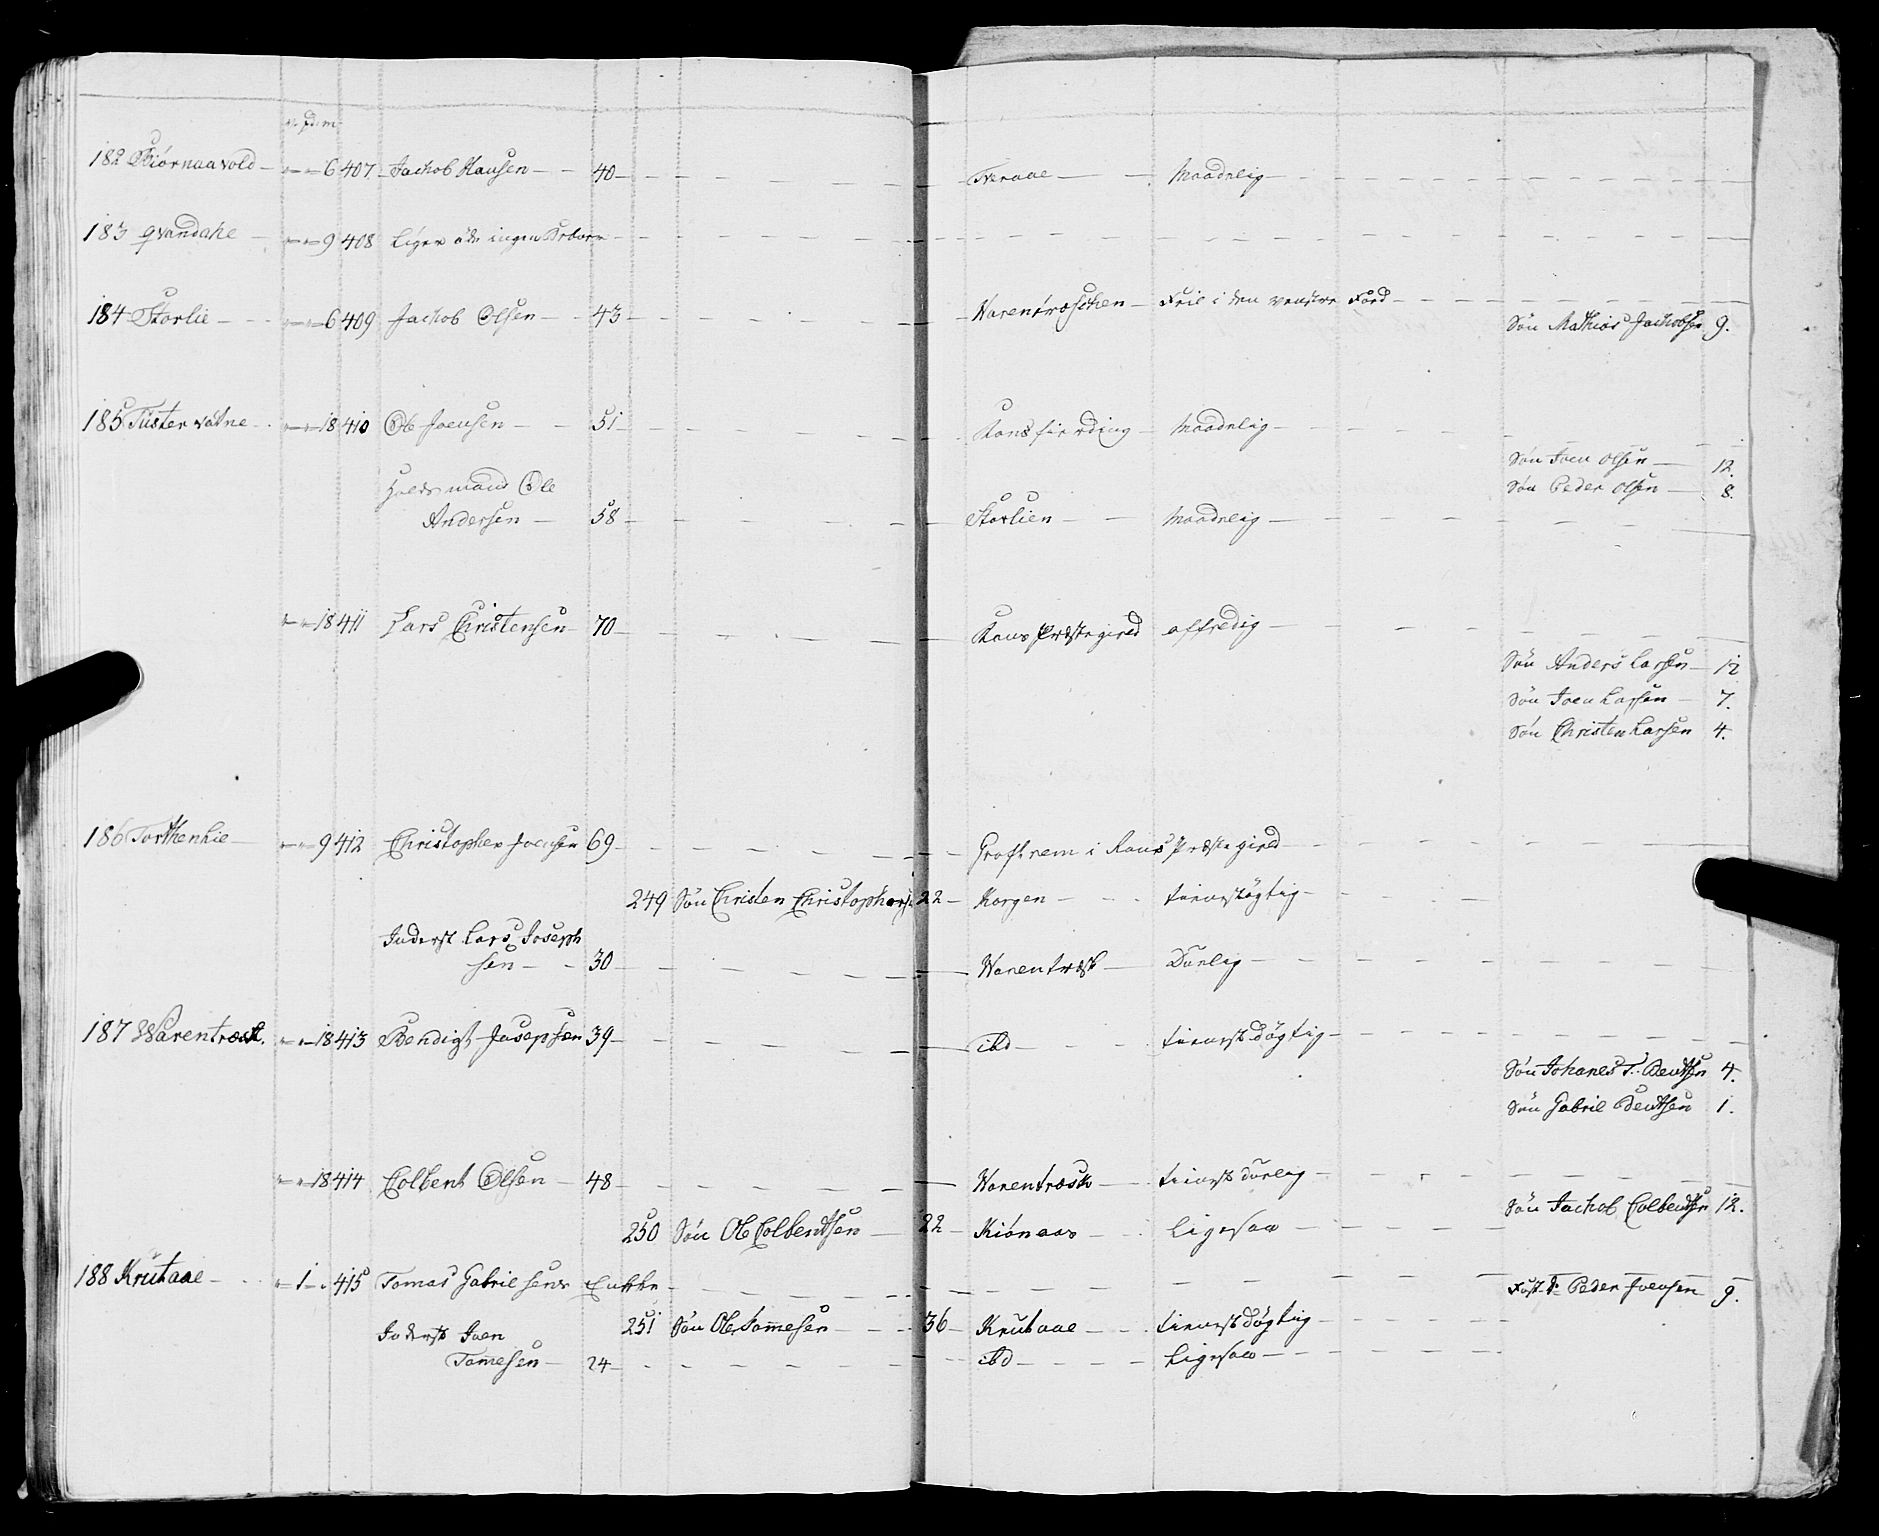 182 Biørnaavold — " — " — 6 407 Jachob Hansen — 40 — Sveraae — Maadelig —
183 qvandahl — " — " — 9 408 Liger øde ingen Beboere —
184 Storlie — " — " — 6 409 Jachob Olsen — 43 — Warentræschen — Feil i den venstre Foed —
Søn Mathias Jachobsen 9.
185 Tüstervatne — " — " — 18 410 Ole Joensen — 51 — Rans fierding — Maadelig —
Søn Joen Olsen — 12.
Søn Peder Olsen — 8.
Huusmand Ole
Andersen — 58 — Storlien — Maadelig —
" — " — 18 411 Lars Christensen 70 — Rans Præstegield affeldig —
Søn Anders Larsen — 12
Søn Joen Larsen — 7.
Søn Christen Larsen 4.
186 Torkenlie — " — " — 9 412 Christopher Joensen 69 — Groftrem i Rans Præstegield —
249 Søn Christen Christophersen 22 — Korgen — tienestdøgtig —
Inderst Lars Joseph
sen — 30 — Warentræsk — Duelig —
187 Warentræsk. " — " — 18 413 Bendigt Josepsen 39 — ibd — tienestdøgtig —
Søn Johanes T. Bentsen 4.
Søn Gabriel Bentsen 1.
" — " — 18 414 Colbent Olsen — 48 — Warentræsk — tienestduelig —
Søn Jachob Colbentsen 12.
250 Søn Ole Colbentsen — 22 — Kiønaas — Ligesaa —
188 Krutaae — " — 1 — " 415 Tomas Gabrielsens Enkke —
Peder Joensen 9.
251 Søn Ole Tomesen — 36 — Krutaae — tienestdøgtig —
Inderst Joen
Tomesen — 24 — ibd — Ligesaa —